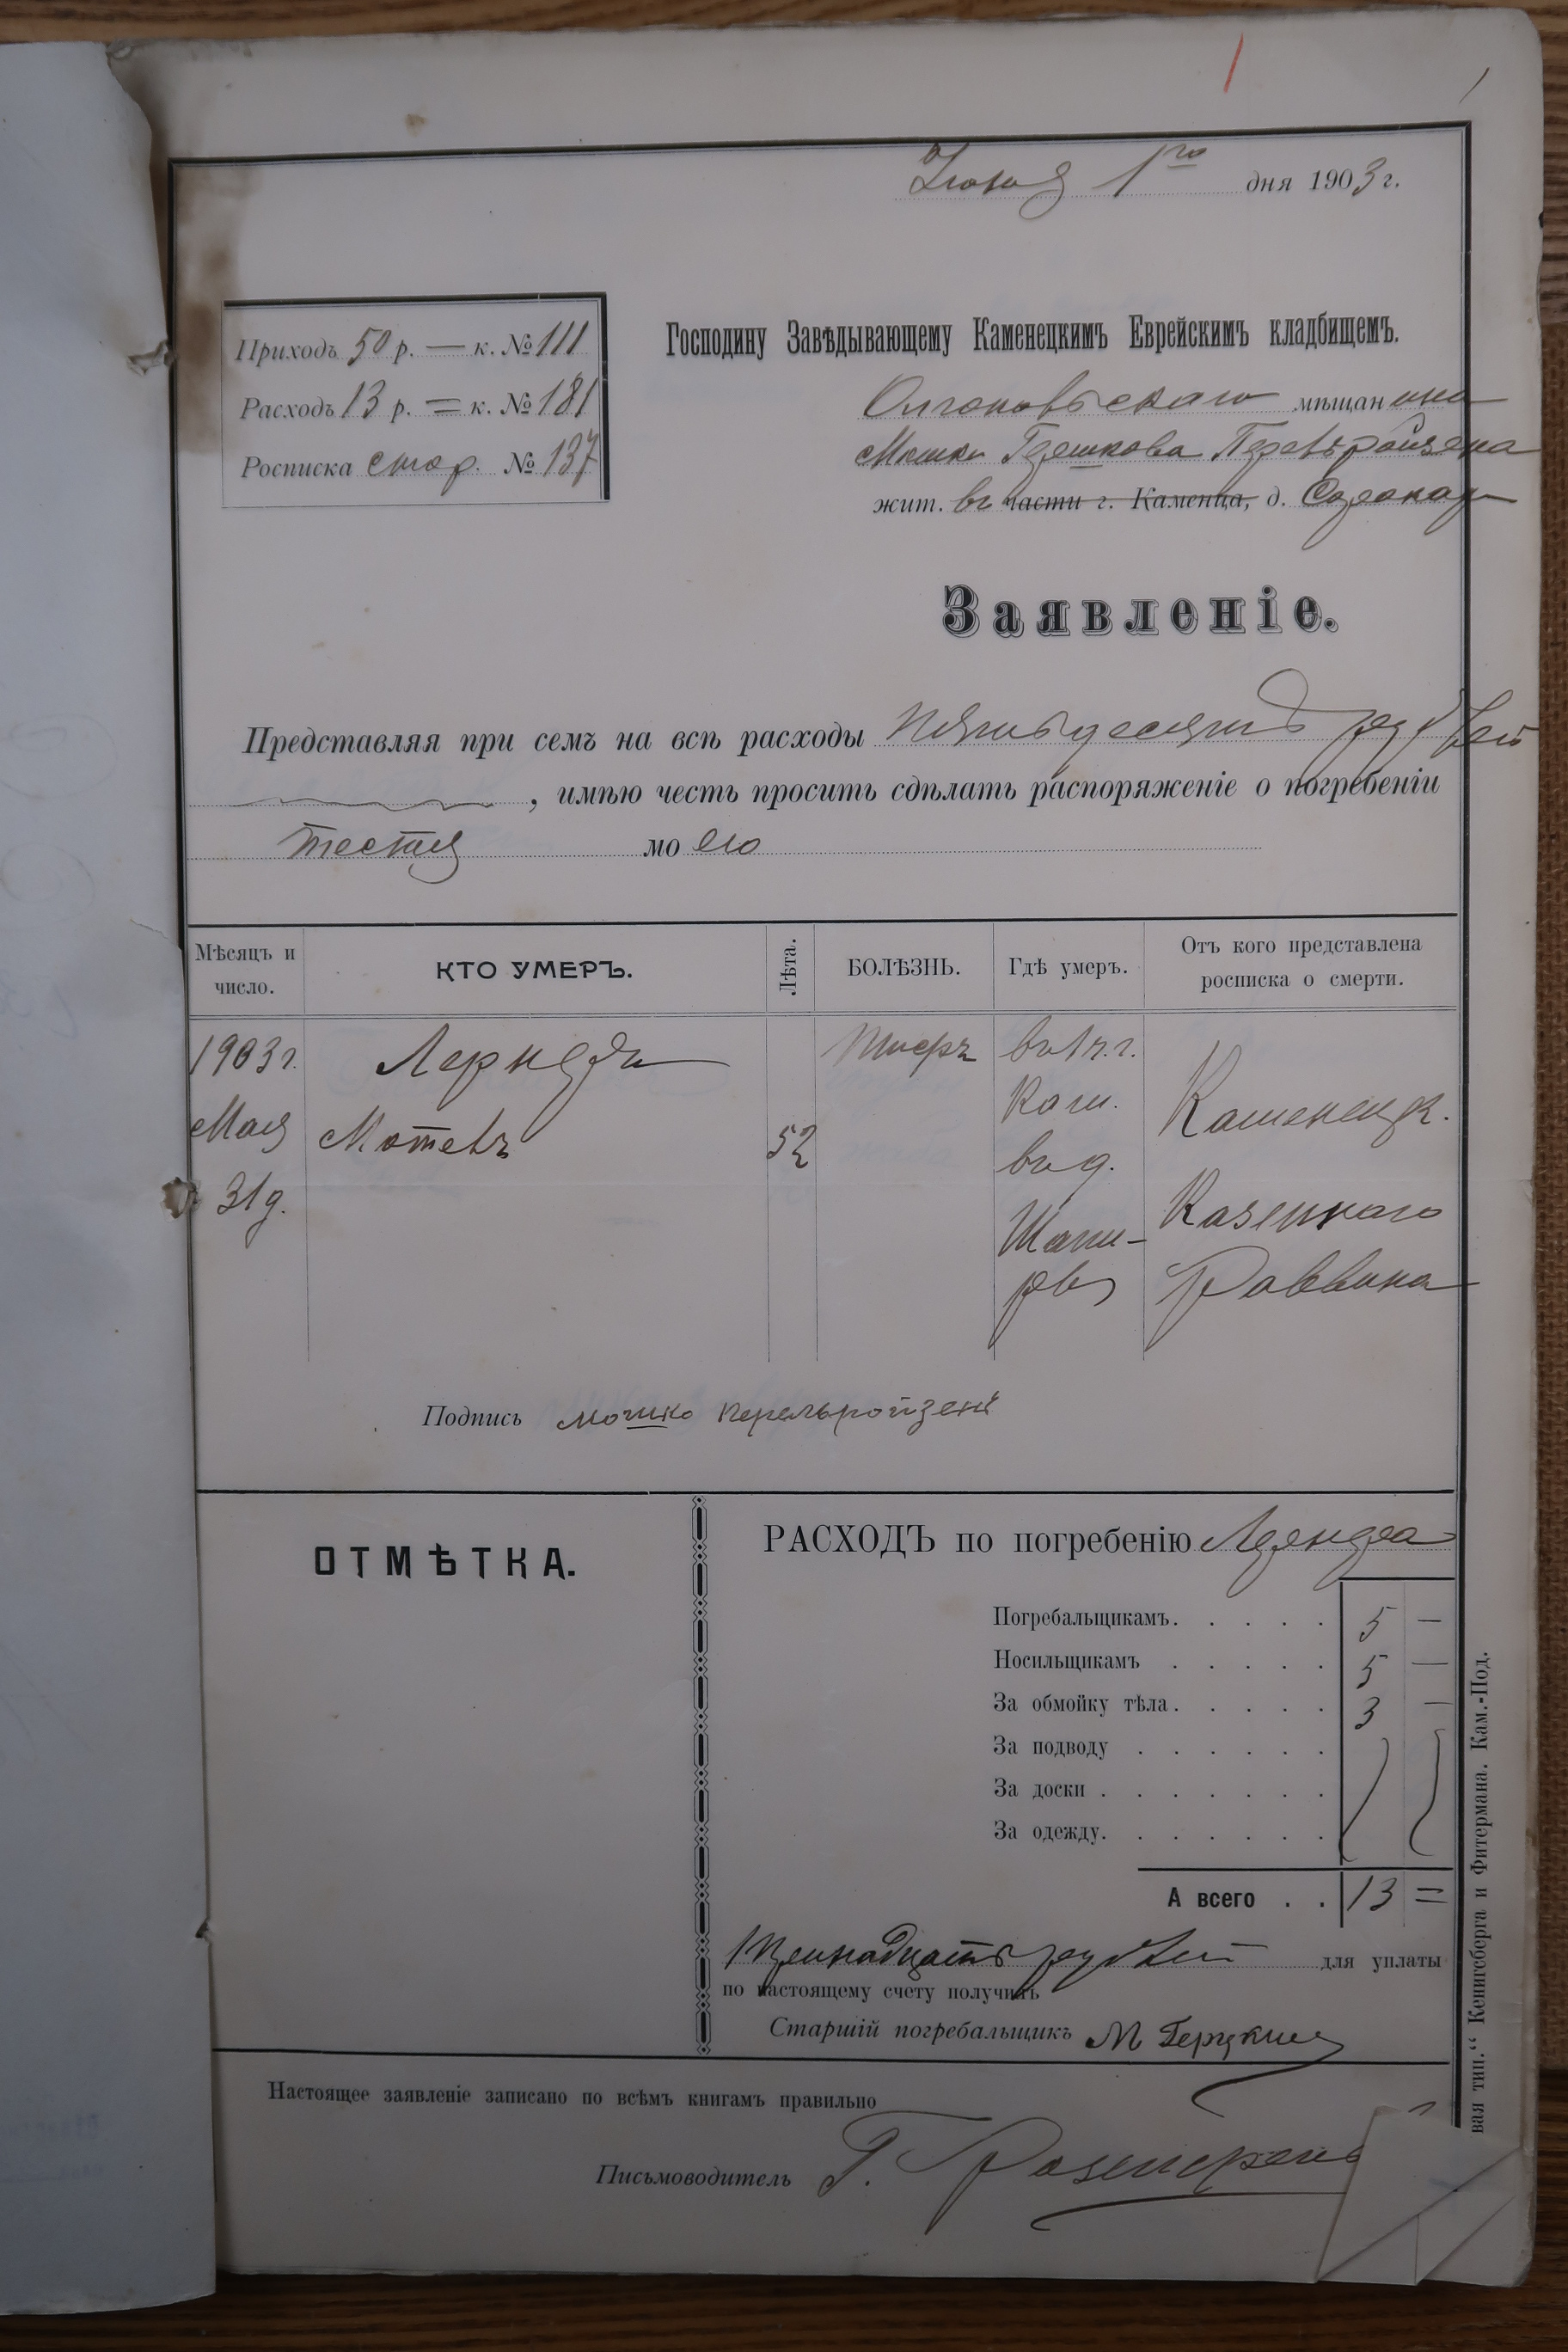 1
1
Іюня 1го дня 1903 г.
Приходъ 50 р. — к. № 111
Расходъ 13 р. = к. № 181
Росписка стор. № 137
Господину Завѣдывающему Каменецкимъ Еврейскимъ кладбищемъ.
мѣщанина
Мошки Гершкова Перельройзена
жит. въ части г. Каменца, д.
Заявленіе.
Представляя при семъ на всѣ расходы пятьдесятъ рублей
, имѣю честь просить сдѣлать распоряженіе о погребеніи
тестя моего
Мѣсяцъ и число.
КТО УМЕРЪ.
Лѣта.
БОЛѢЗНЬ.
Гдѣ умеръ.
Отъ кого представлена росписка о смерти.
1903 г.
Мая
31 д.
Лернеръ
Мотель
52
въ 1 ч. г.
Кам.
въ д.
Каменецк.
Казеннаго
Раввина
Подпись Мошко Перельройзенъ
ОТМѢТКА.
РАСХОДЪ по погребенію Лернера
Погребальщикамъ. 5 —
Носильщикамъ 5 —
За обмойку тѣла. 3 —
За подводу
За доски
За одежду.
А всего 13 =
Тринадцать рублей для уплаты
по настоящему счету получилъ
Старшій погребальщикъ М
Настоящее заявленіе записано по всѣмъ книгамъ правильно
Письмоводитель Г.
вая тип." Кенигсберга и Фитермана. Кам.-Под.